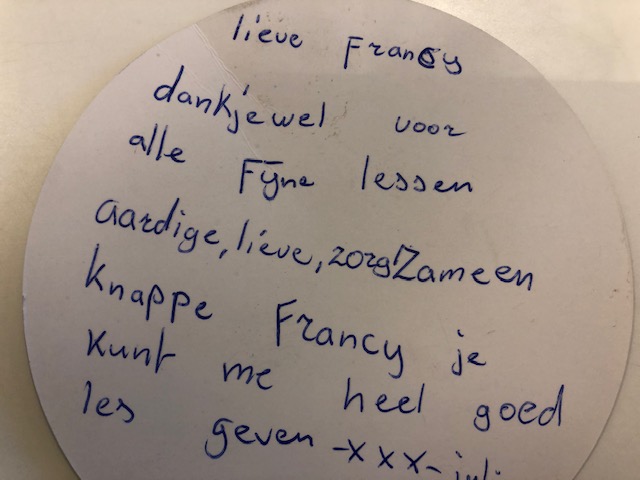 lieve Francy
dankjewel voor
alle Fijne lessen
aardige, lieve, zorgZameen
knappe Francy je
kunt me heel goed
les geven -xxx-